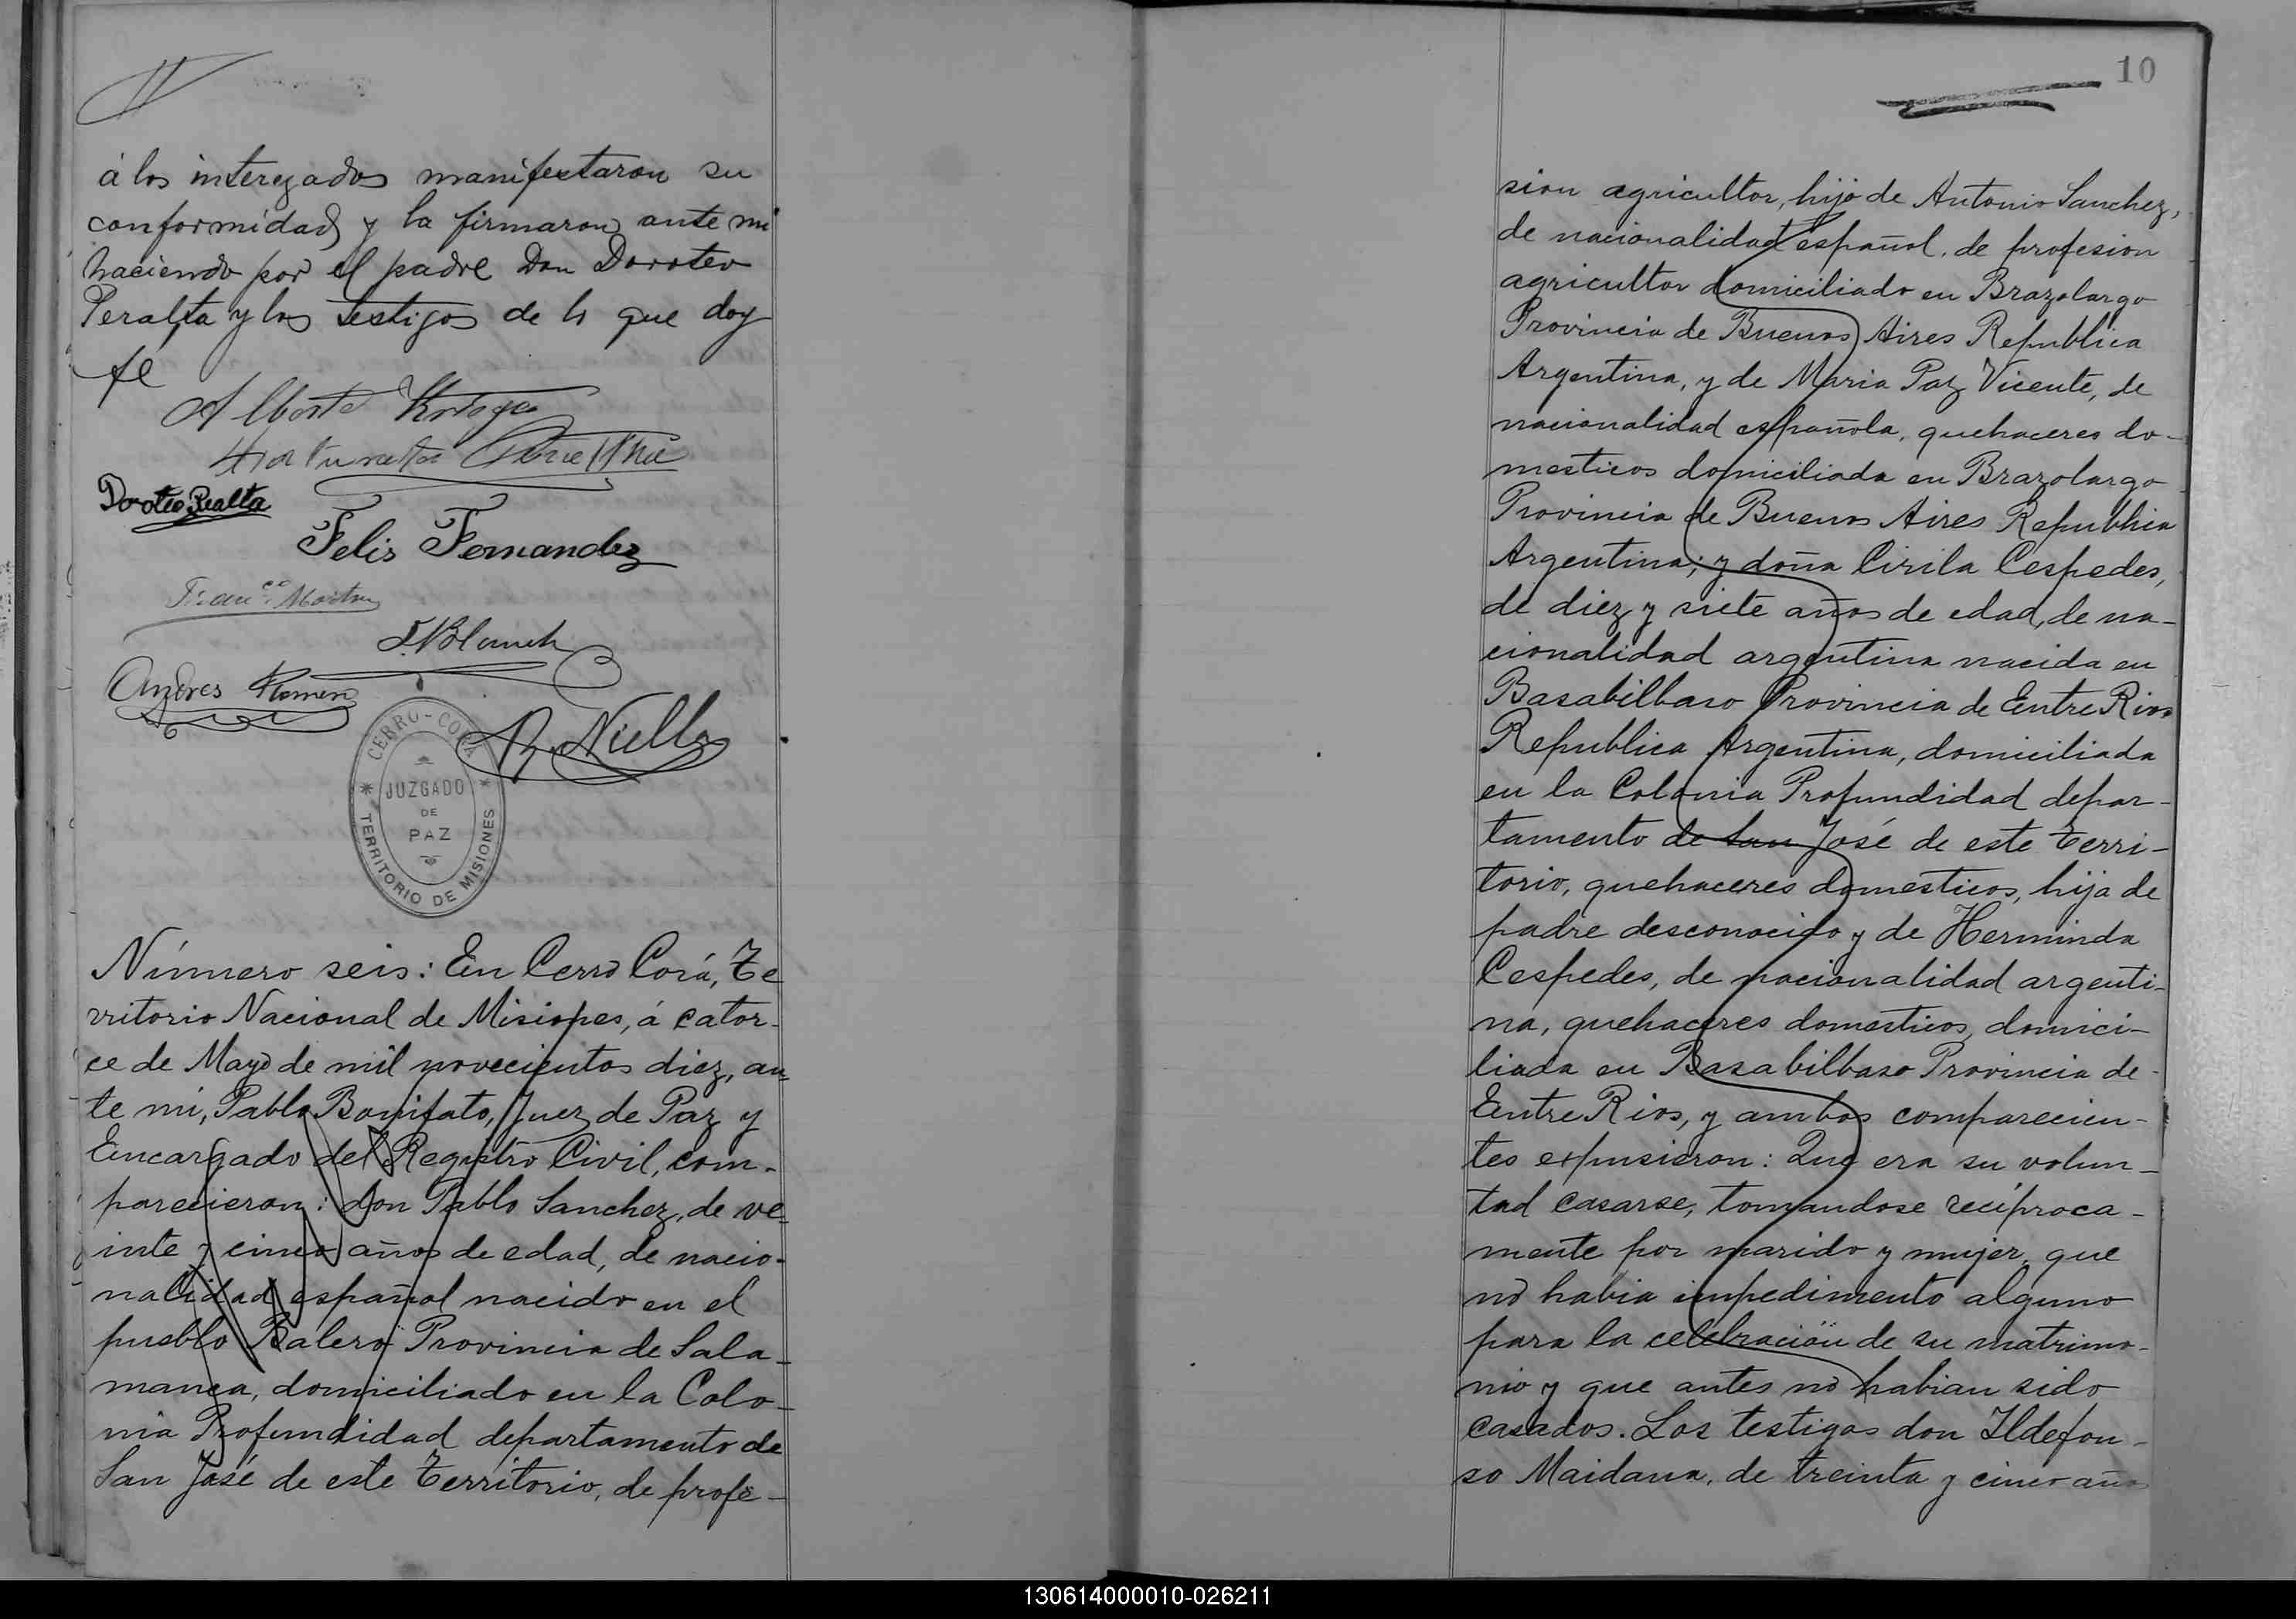 á los interezados manifestaron su
conformidad y la firmaron ante mi
haciendo por el padre Don Doroteo
Peralta y los testigos de lo que doy
fé
Doroteo Peralta
Felis Fernandez
Andres
R. Niella
CERRO-CORA
JUZGADO
DE
PAZ
TERRITORIO DE MISIONES
Número seis: En Cerro Corá, Te
rritorio Nacional de Misiones, á cator-
ce de Mayo de mil novecientos diez, an-
te mi, Pablo Bonifato, Juez de Paz y
Encargado del Registro Civil, com-
parecieron: don Pablo Sanchez, de ve-
inte y cinco años de edad, de nacio-
nalidad español nacido en el
pueblo Balero Provincia de Sala-
manca, domiciliado en la Colo-
nia Profundidad departamento de
San José de este Territorio, de profe-
10
sion agricultor, hijo de Antonio Sanchez,
de nacionalidad español, de profesion
agricultor domiciliado en Brazolargo
Provincia de Buenos Aires Republica
Argentina, y de Maria Paz Vicente, de
nacionalidad española, quehaceres do-
mesticos domiciliada en Brazolargo
Provincia de Buenos Aires Republica
Argentina; y doña Cirila Cespedes,
de diez y siete años de edad, de na-
cionalidad argentina nacida en
Basabilbaso Provincia de Entre Rios
Republica Argentina, domiciliada
en la Colonia Profundidad depar-
tamento de San José de este Terri-
torio, quehaceres domesticos, hija de
padre desconocido y de Herminda
Cespedes, de nacionalidad argenti-
na, quehaceres domesticos, domici-
liada en Basabilbaso Provincia de
Entre Rios, y ambos comparecien-
tes expusieron: Que era su volun-
tad casarse, tomandose recíproca-
mente por marido y mujer, que
no habia impedimento alguno
para la celebración de su matrimo-
nio y que antes no habian sido
casados. Los testigos don Ildefon-
so Maidana, de treinta y cinco años
130614000010-026211